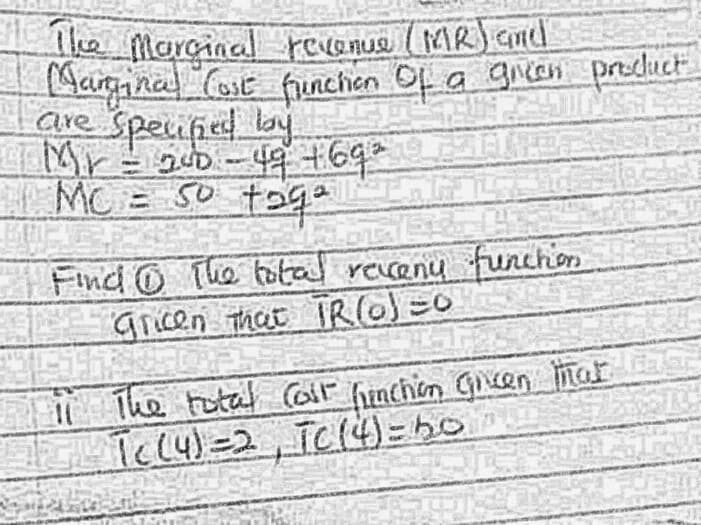 The Marginal revenue (MR) and
Marginal Cost function Of a given product
are specified by
Mr = 200 - 4q + 6q²
MC = 50 + 2q²
Find ① The total revenu function
given that TR(0) = 0
ii The total Cost function given that
Tc(4) = 2 , TC(4) =